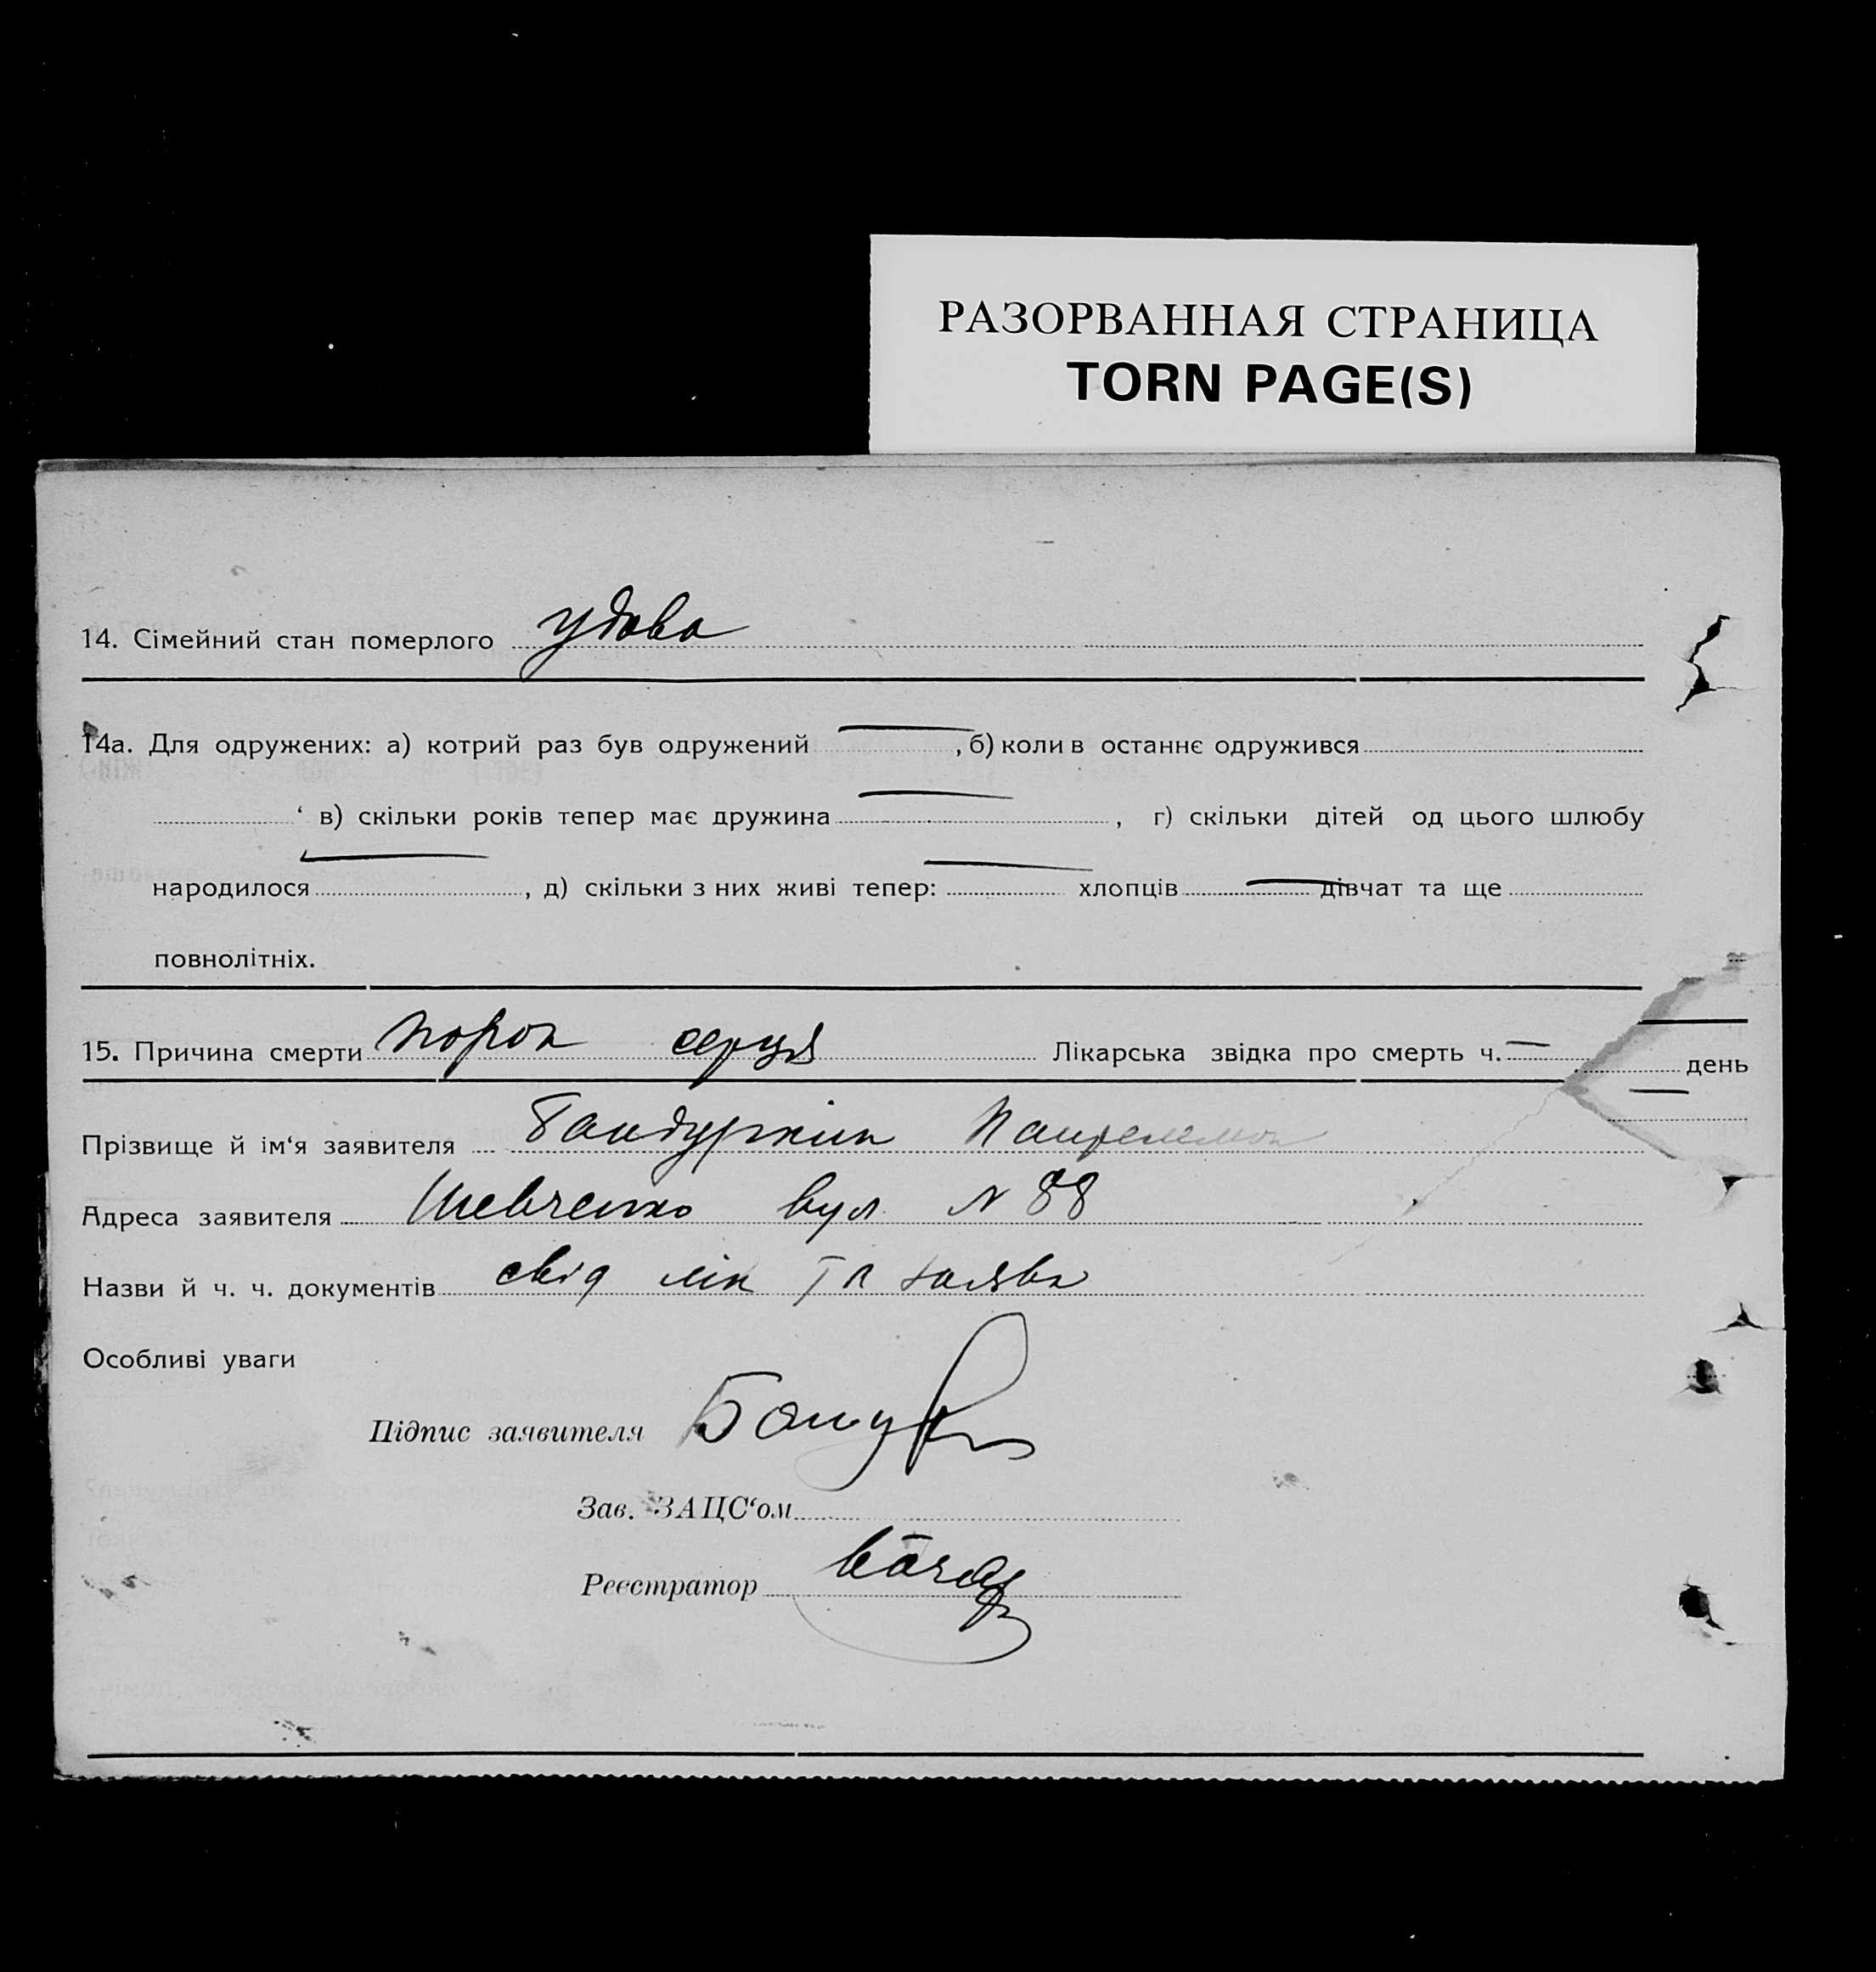 РАЗОРВАННАЯ СТРАНИЦА
TORN PAGE(S)
14. Сімейний стан померлого удова
14а. Для одружених: а) котрий раз був одружений —, б) коли в останнє одружився
в) скільки років тепер має дружина —, г) скільки дітей од цього шлюбу
народилося —, д) скільки з них живі тепер: — хлопців — дівчат та ще
повнолітніх.
15. Причина смерти порок серця Лікарська звідка про смерть ч. —
день
Прізвище й ім‘я заявителя
Адреса заявителя Шевченко вул N 88
Назви й ч. ч. документів свід лік та заява
Особливі уваги
Підпис заявителя
Зав. ЗАЦС‘ом
Реєстратор